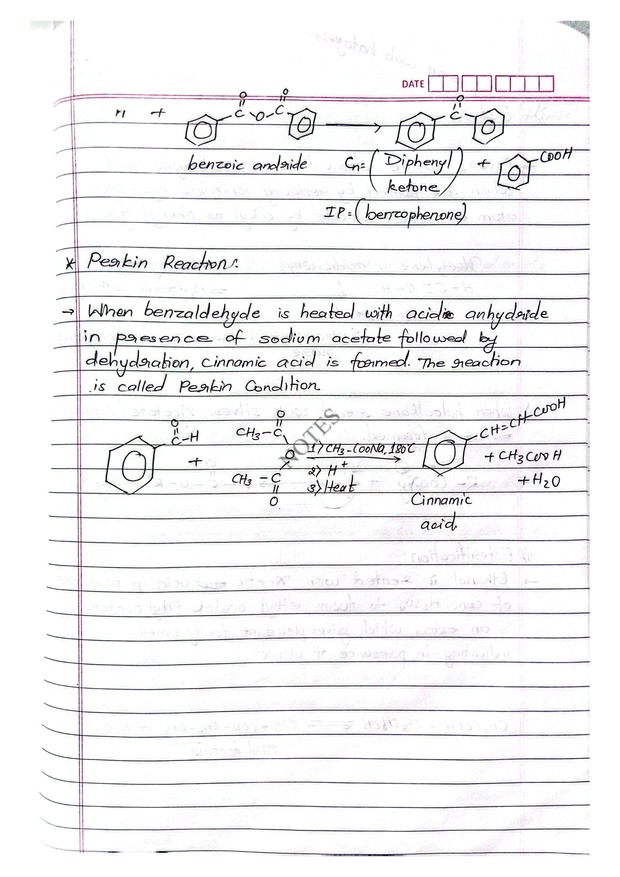 DATE
" +
O O
C O-C
O
C
benzoic andride Cn=(Diphenyl ketone) + COOH
IP=(benzophenone)
* Perkin Reaction:
→ When benzaldehyde is heated with acidic anhydride
in presence of sodium acetate followed by
dehydration, cinnamic acid is formed. The reaction
is called Perkin Condition.
O
C-H
+
O
CH3-C
O
CH3-C
O
1) CH3-COONa, 180°C
2) H+
3) Heat
CH=CH-COOH
+ CH3COOH
+ H2O
Cinnamic
acid.
NOTES